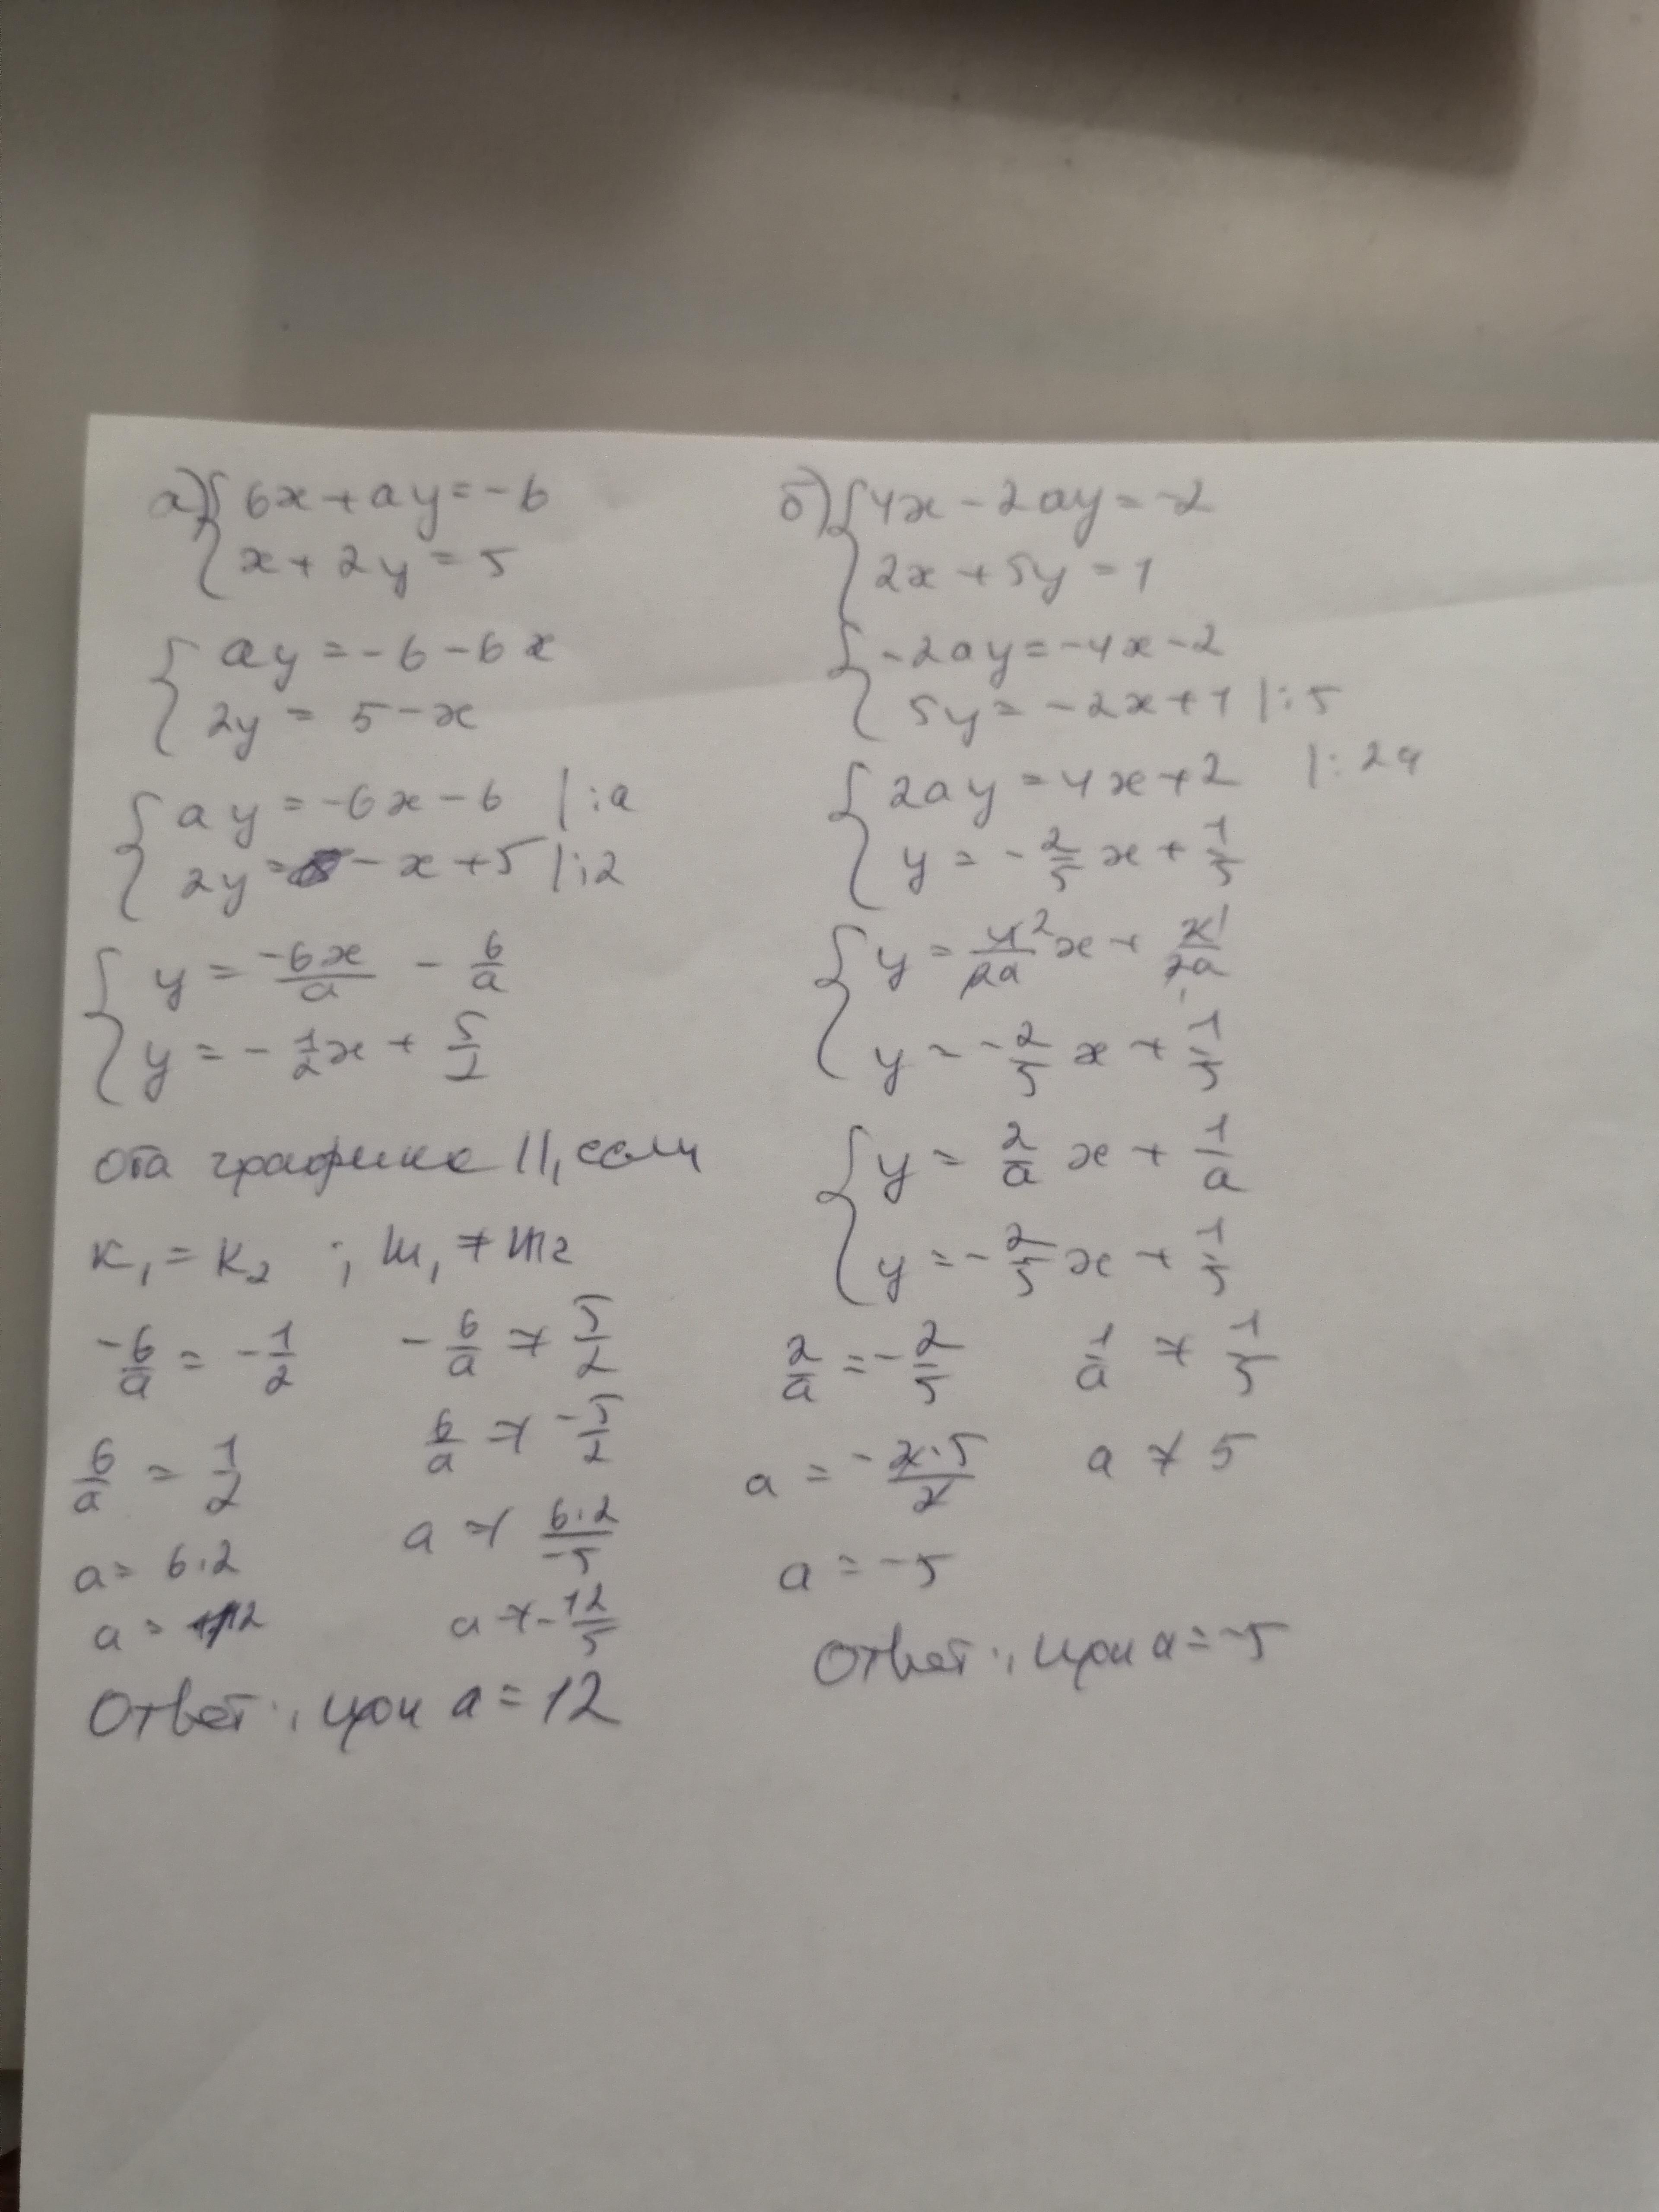 а) { 6x + ay = -6
x + 2y = 5
{ ay = -6 - 6x
2y = 5 - x
{ ay = -6x - 6 |:a
2y = - x + 5 |:2
{ y = -6x/a - 6/a
y = - 1/2 x + 5/2
Оба графика ||, если
k₁ = k₂ ; m₁ ≠ m₂
-6/a = -1/2 - 6/a ≠ 5/2
6/a = 1/2 6/a ≠ -5/2
a = 6·2 a ≠ 6·2/-5
a = 12 a ≠ -12/5
Ответ: при a = 12
б) { 4x - 2ay = -2
2x + 5y = 1
{ -2ay = -4x - 2
5y = -2x + 1 |:5
{ 2ay = 4x + 2 |: 2a
y = - 2/5 x + 1/5
{ y = 4²/2a x + 2¹/2a
y = - 2/5 x + 1/5
{ y = 2/a x + 1/a
y = - 2/5 x + 1/5
2/a = - 2/5 1/a ≠ 1/5
a = - 2·5/2 a ≠ 5
a = -5
Ответ: при a = -5